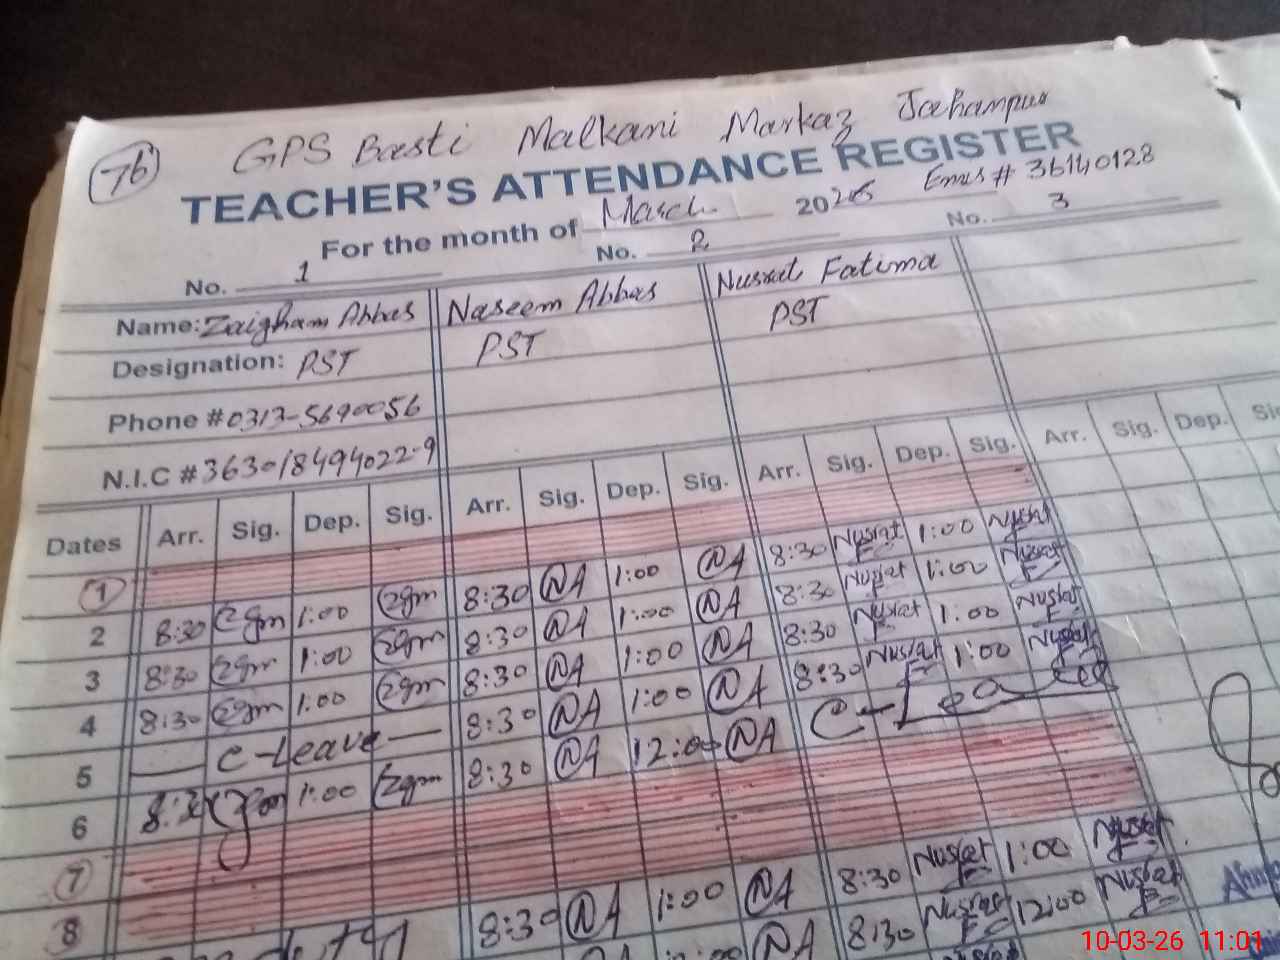 76
GPS Basti Malkani Markaz Jaehampur
TEACHER'S ATTENDANCE REGISTER
Emis # 36140128
For the month of March 2026
No. 1 No. 2 No. 3
Name: Zaigham Abbas Naseem Abbas Nusrat Fatima
Designation: PST PST PST
Phone # 0313-5690056
N.I.C # 363018494022-9
Dates Arr. Sig. Dep. Sig. Arr. Sig. Dep. Sig. Arr. Sig. Dep. Sig. Arr. Sig. Dep.
1
2 8:30 Zgm 1:00 Zgm 8:30 NA 1:00 NA 8:30 Nusrat 1:00 Nusrat
3 8:30 Zgm 1:00 Zgm 8:30 NA 1:00 NA 8:30 Nusrat 1:00 Nusrat
4 8:30 Zgm 1:00 Zgm 8:30 NA 1:00 NA 8:30 Nusrat 1:00 Nusrat
5 C-Leave 8:30 NA 1:00 NA 8:30 Nusrat 1:00 Nusrat
6 8:30 Zgm 1:00 Zgm 8:30 NA 12:00 NA C-Leave
7
8
8:30 NA 1:00 NA 8:30 Nusrat 1:00 Nusrat
NA 8:30 Nusrat 12:00 Nusrat
10-03-26 11:01